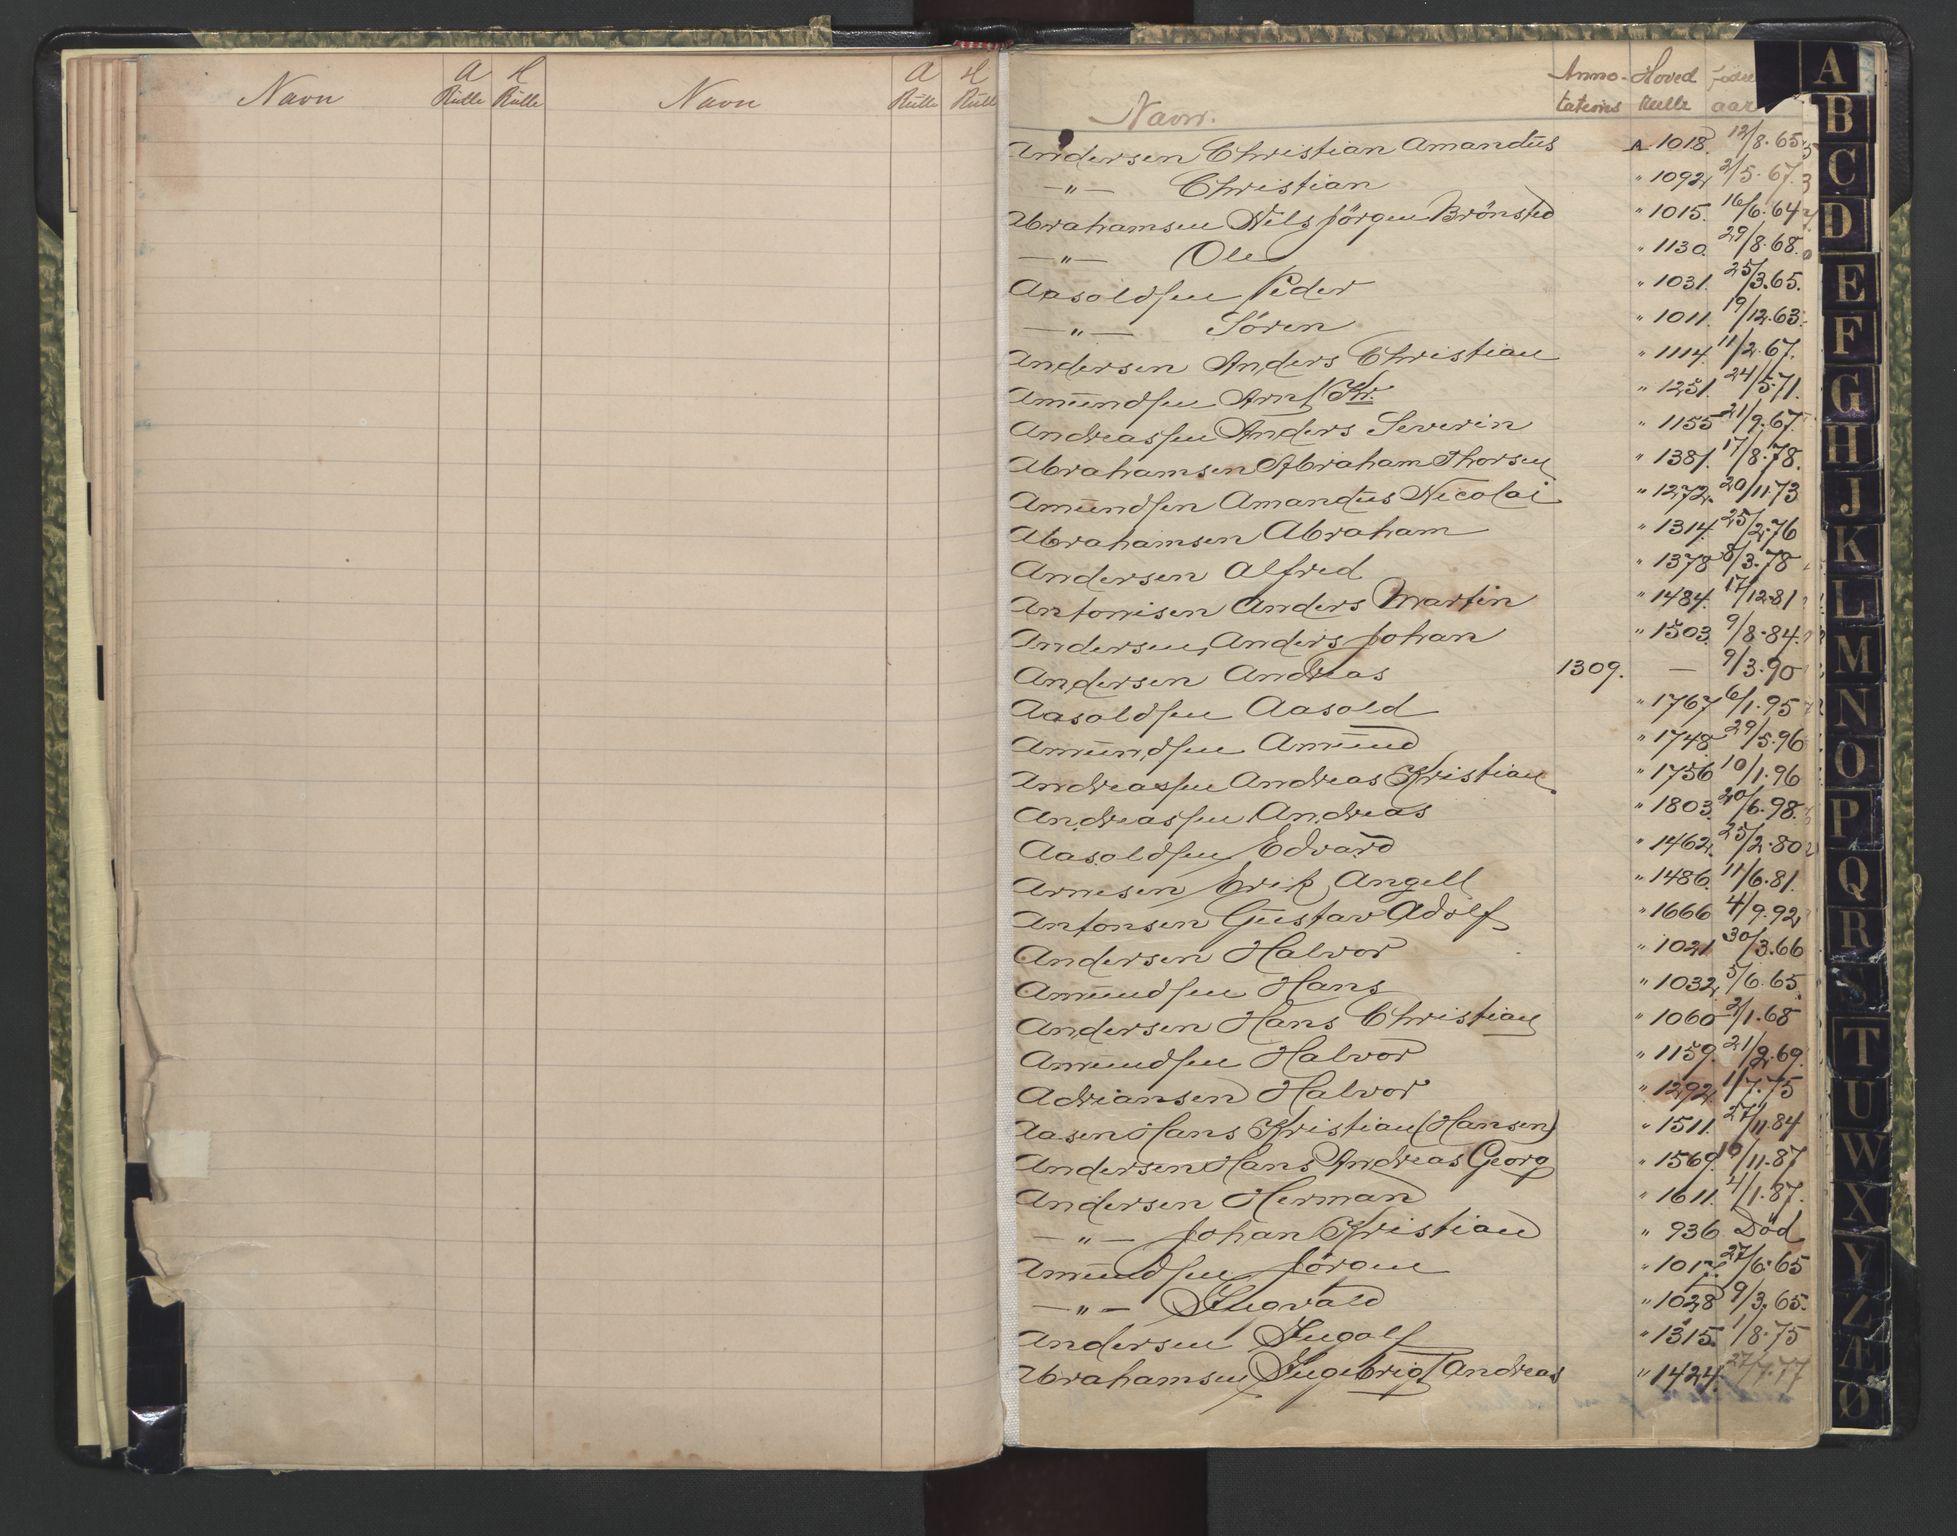 Navn A Rulle H Rulle Navn A Rulle H Rulle
Navn. Anno- Hoved
tations Rulle aar
Andersen Christian Amandus A 1018. 12/8.65
—"— Christian " 1092 2/5.67.
Abrahamsen Nils Jörgen Brönsted " 1015. 16/6.64
—"— Ole " 1130. 29/8.68.
Aasoldsen Peder " 1031. 25/3.65.
—"— Sören " 1011. 19/12.63.
Andersen Anders Christian " 1114. 11/2.67.
Amundsen Arnt Chr. " 1251. 24/5.71.
Andreassen Anders Severin " 1155 21/9.67.
Abrahamsen Abraham Thorsen " 1381. 17/8.78.
Amundsen Amandus Nicolai " 1272. 20/11.73
Abrahamsen Abraham " 1314. 25/2.76
Andersen Alfred " 1378 8/3.78
Antonisen Anders Martin " 1484. 17/12.81
Andersen, Anders Johan " 1503. 9/8.84.
Andersen Andreas 1309. — 9/3.90
Aasoldsen Aasold " 1767 6/1.95
Amundsen Amund " 1748 29/5.96
Andreassen Andreas Kristian " 1756 10/1.96
Andreassen Andreas " 1803. 20/6.98.
Aasoldsen Edvard " 1462. 25/2.80
Arnesen Erik Angell " 1486. 11/6.81.
Antonsen Gustav Adolf " 1666 4/9.92
Andersen Halvor " 1021. 30/3.66
Amundsen Hans " 1032. 5/6.65.
Andersen Hans Christian " 1060 2/1.68
Amundsen Halvor " 1159. 21/2.69.
Adriansen Halvor " 1292. 1/7.75
Aasen Hans Kristian (Hansen) " 1511. 27/11.84
Andersen Hans Andreas Georg " 1569. 10/11.87
Andersen Herman " 1611. 4/1.87.
—"— Johan Kristian " 936 Död
Amundsen Jörgen 27/6.65
—"— Ingvald " 1028 9/3.65.
Andersen Ingolf " 1315. 1/8.75
Abrahamsen Ingebrigt Andreas " 1424. 27/7.77
A
B
C
D
E
F
G
H
J
K
L
M
N
O
P
Q
R
S
T
U
W
X
Y
Z
Æ
Ø